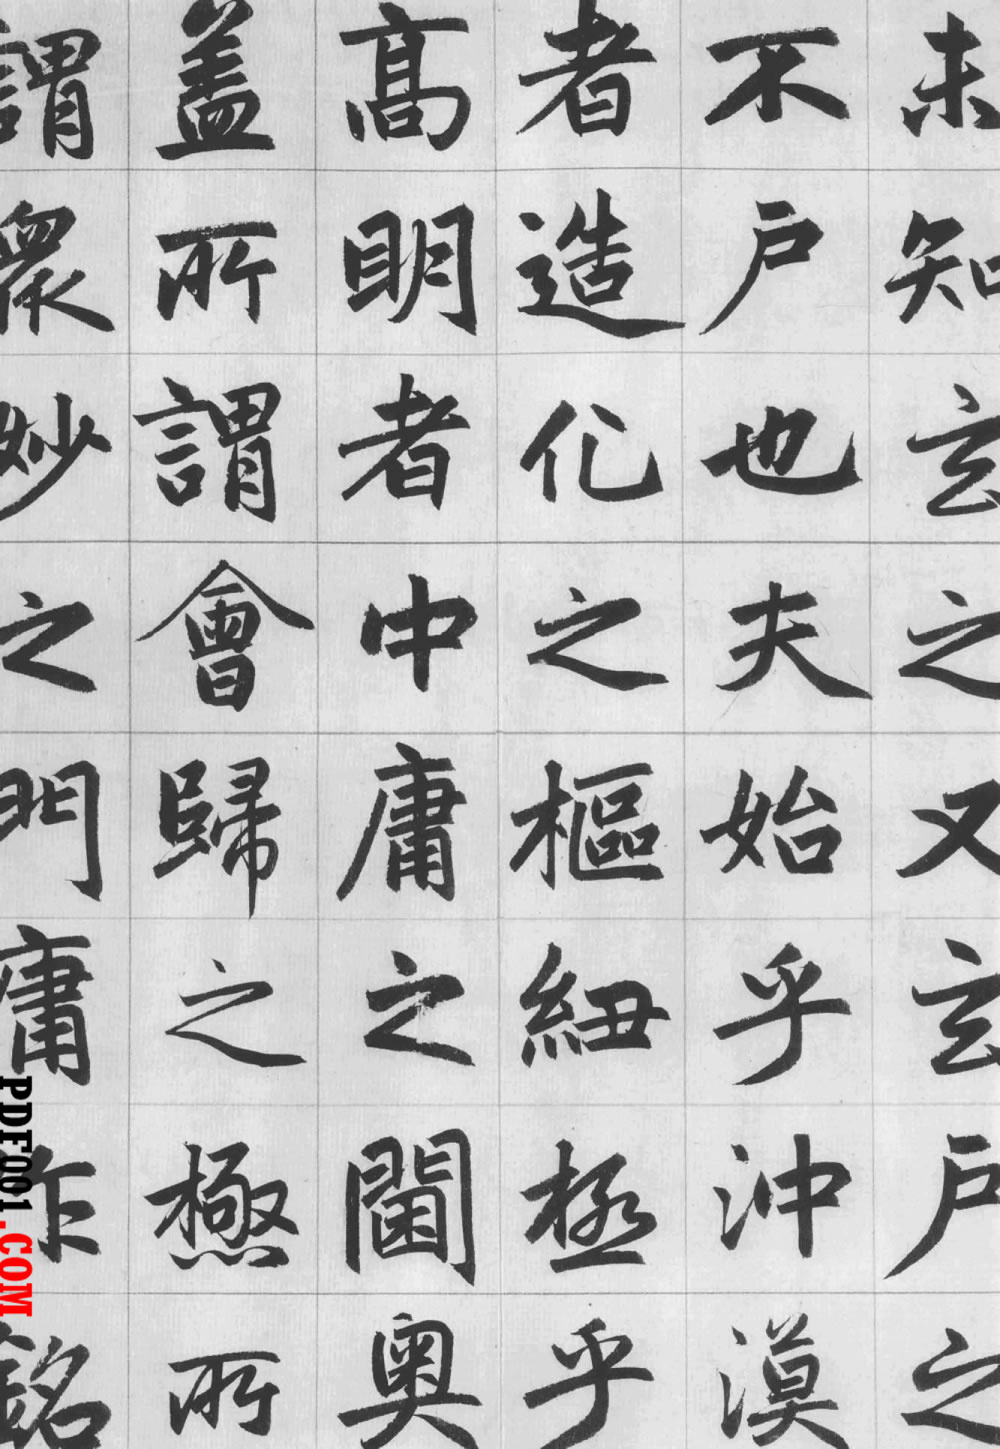 未知玄之又玄戶之
不戶也夫始乎沖漠
者造化之樞紐極乎
高明者中庸之閫奧
蓋所謂會歸之極所
謂眾妙之門庸作銘
PDF001.COM